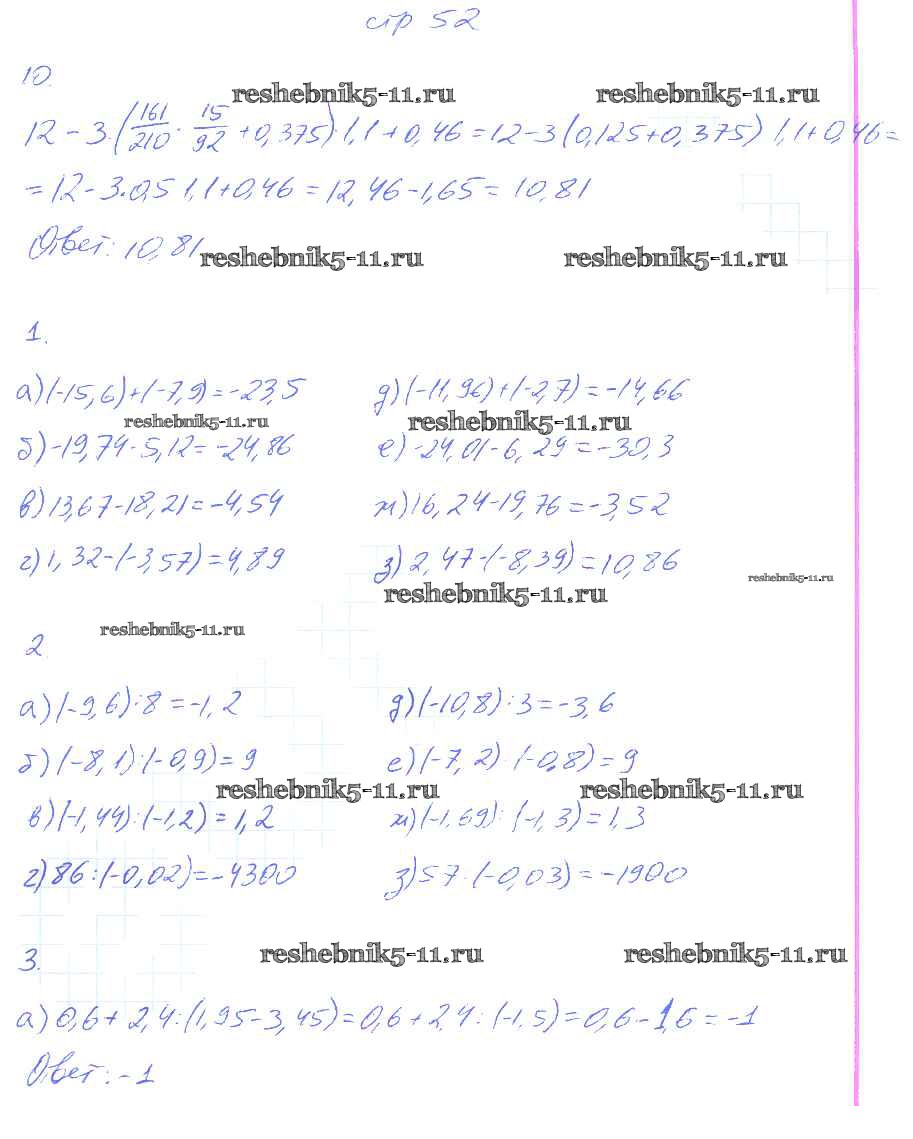 стр 52
10.
reshebnik5-11.ru reshebnik5-11.ru
12 - 3·(161/210 · 15/92 + 0,375) 1,1 + 0,46 = 12 - 3 (0,125 + 0,375) 1,1 + 0,46 =
= 12 - 3·0,5 1,1 + 0,46 = 12,46 - 1,65 = 10,81
Ответ: 10,81
reshebnik5-11.ru reshebnik5-11.ru
1.
а) (-15,6) + (-7,9) = -23,5 д) (-11,96) + (-2,7) = -14,66
reshebnik5-11.ru reshebnik5-11.ru
б) -19,74 - 5,12 = -24,86 е) -24,01 - 6,29 = -30,3
в) 13,67 - 18,21 = -4,54 ж) 16,24 - 19,76 = -3,52
г) 1,32 - (-3,57) = 4,89 з) 2,47 - (-8,39) = 10,86
reshebnik5-11.ru reshebnik5-11.ru
reshebnik5-11.ru
2
а) (-9,6) : 8 = -1,2 д) (-10,8) : 3 = -3,6
б) (-8,1) : (-0,9) = 9 е) (-7,2) : (-0,8) = 9
reshebnik5-11.ru reshebnik5-11.ru
в) (-1,44) : (-1,2) = 1,2 ж) (-1,69) : (-1,3) = 1,3
г) 86 : (-0,02) = -4300 з) 57 : (-0,03) = -1900
3.
reshebnik5-11.ru reshebnik5-11.ru
а) 0,6 + 2,4 : (1,95 - 3,45) = 0,6 + 2,4 : (-1,5) = 0,6 - 1,6 = -1
Ответ: -1